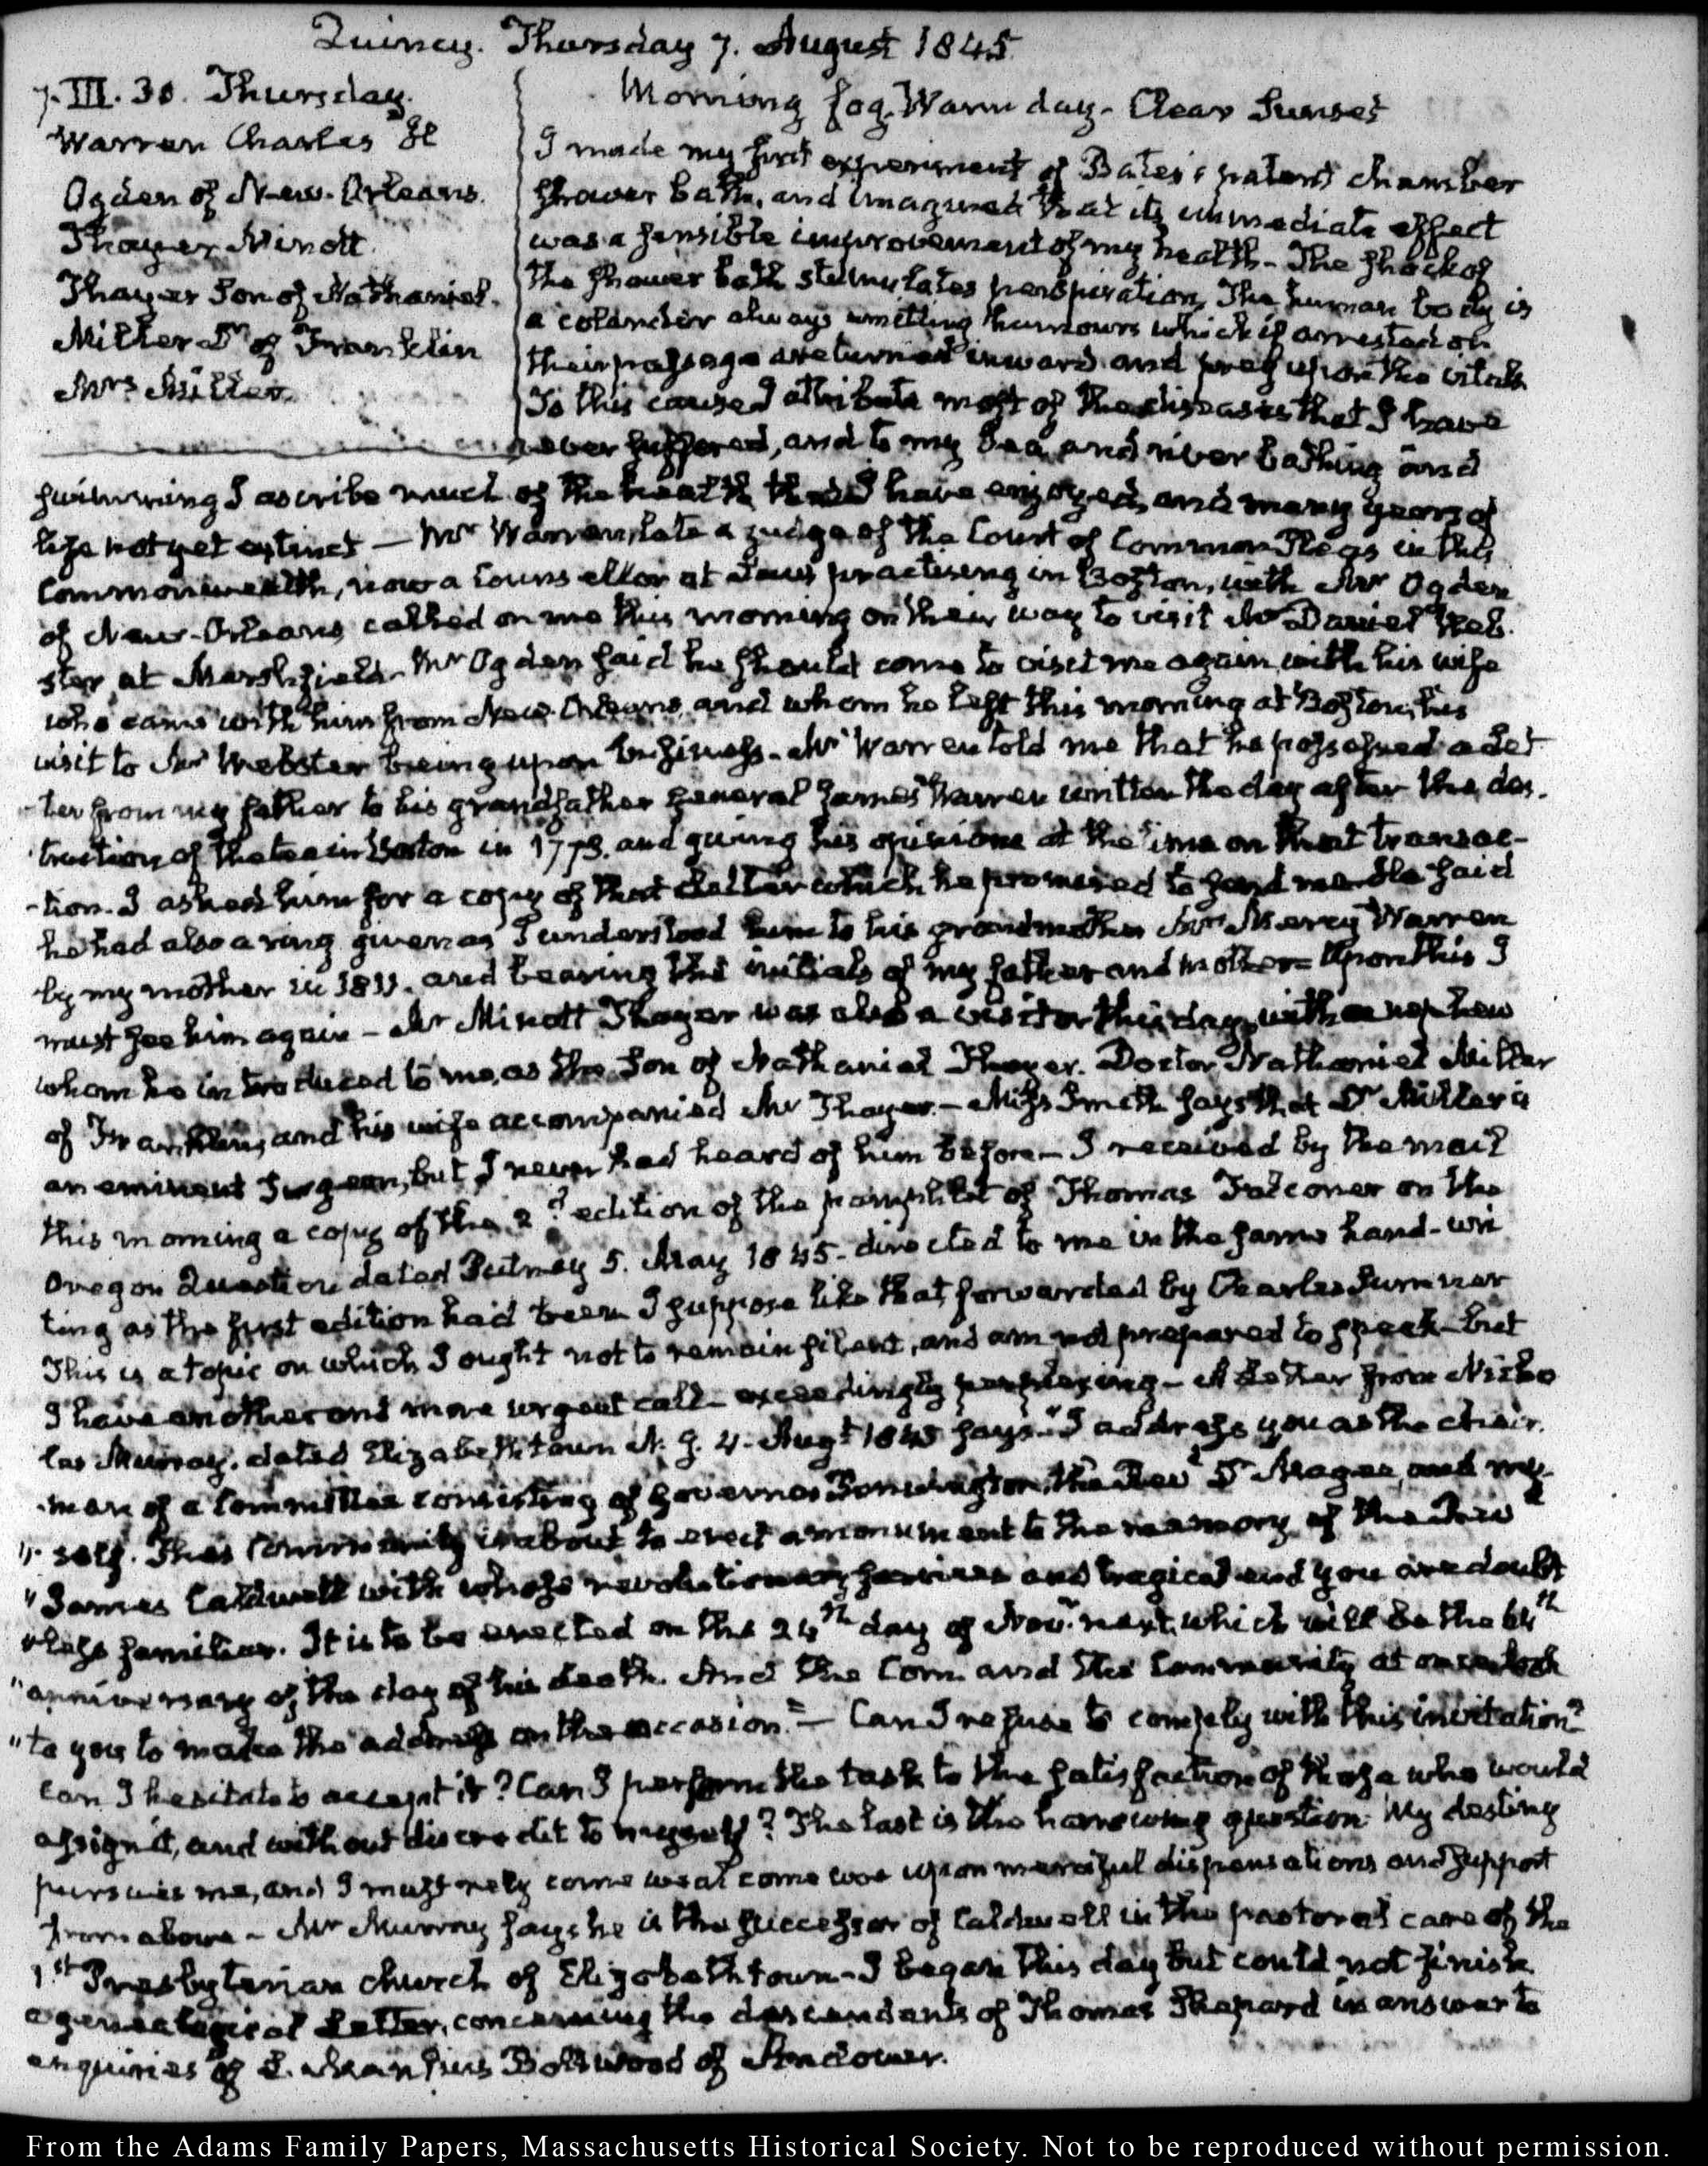 Quincy. Thursday 7. August 1845.
7. III. 30. Thursday.
Warren Charles H
Ogden of New-Orleans.
Thayer Minott
Thayer Son of Nathaniel.
Miller Dr of Franklin
Mrs Miller.
Morning fog. Warm day. Clear Sunset
I made my first experiment of Bates's patent chamber
shower bath, and imagined that its immediate effect
was a sensible improvement of my health. The shock of
the shower bath stimulates perspiration. The human body is
a colander always emitting humours which if arrested on
their passage are turned inward and prey upon the vitals.
To this cause I attribute most of the diseases that I have
ever suffered, and to my sea and river bathing and
swimming I ascribe much of the health that I have enjoyed, and many years of
life not yet extinct — Mr Warren, late a judge of the Court of Common Pleas in this
Commonwealth, now a Counsellor at Law practising in Boston, with Mr Ogden
of New-Orleans called on me this morning on their way to visit Mr Daniel Web-
ster at Marshfield. Mr Ogden said he should come to visit me again with his wife
who came with him from New-Orleans, and whom he left this morning at Boston, his
visit to Mr Webster being upon business. Mr Warren told me that he possessed a Let-
-ter from my father to his grandfather General James Warren written the day after the des-
truction of the tea in Boston in 1773. and giving his opinions at the time on that transac-
-tion. I asked him for a copy of that Letter which he promised to send me. He said
he had also a ring given as I understood him to his grandmother Mrs Mercy Warren
by my mother in 1811. and bearing the initials of my father and mother. Upon this I
must see him again — Mr Minott Thayer was also a visitor this day, with a nephew
whom he introduced to me, as the Son of Nathaniel Thayer. Doctor Nathaniel Miller
of Franklin, and his wife accompanied Mr Thayer. — Miss Smith says that Dr Miller is
an eminent Surgeon, but I never had heard of him before — I received by the mail
this morning a copy of the 2d edition of the pamphlet of Thomas Falconer on the
Oregon Question dated Putney 5. May 1845. directed to me in the same hand-wri
ting as the first edition had been I suppose like that forwarded by Charles Sumner
This is a topic on which I ought not to remain silent, and am not prepared to speak. But
I have another and more urgent call exceedingly perplexing — A Letter from Nicho
las Murray. dated Elizabethtown N. J. 4. Augt 1845 says. "I address you as the chair-
-man of a Committee consisting of Governor Pennington, the Revd Dr Magee, and my-
"self. This Community is about to erect a monument to the memory of the Revd
"James Caldwell with whose revolutionary services and tragical end you are doubt
"less familiar. It is to be erected on the 24th day of Novr next, which will be the 64th
"anniversary of the day of his death. And the Com. and the Community at once look
"to you to make the address on the occasion." — Can I refuse to comply with this invitation?
can I hesitate to accept it? Can I perform the task to the satisfaction of those who would
assign it, and without discredit to myself? The last is the harrowing question. My destiny
pursues me, and I must rely come weal come woe upon merciful dispensations and support
from above — Mr Murray says he is the successor of Caldwell in the pastoral care of the
1st Presbyterian church of Elizabethtown — I began this day but could not finish
a genealogical Letter, concerning the descendants of Thomas Shepard in answer to
enquiries of Boltwood of Andover.
From the Adams Family Papers, Massachusetts Historical Society. Not to be reproduced without permission.